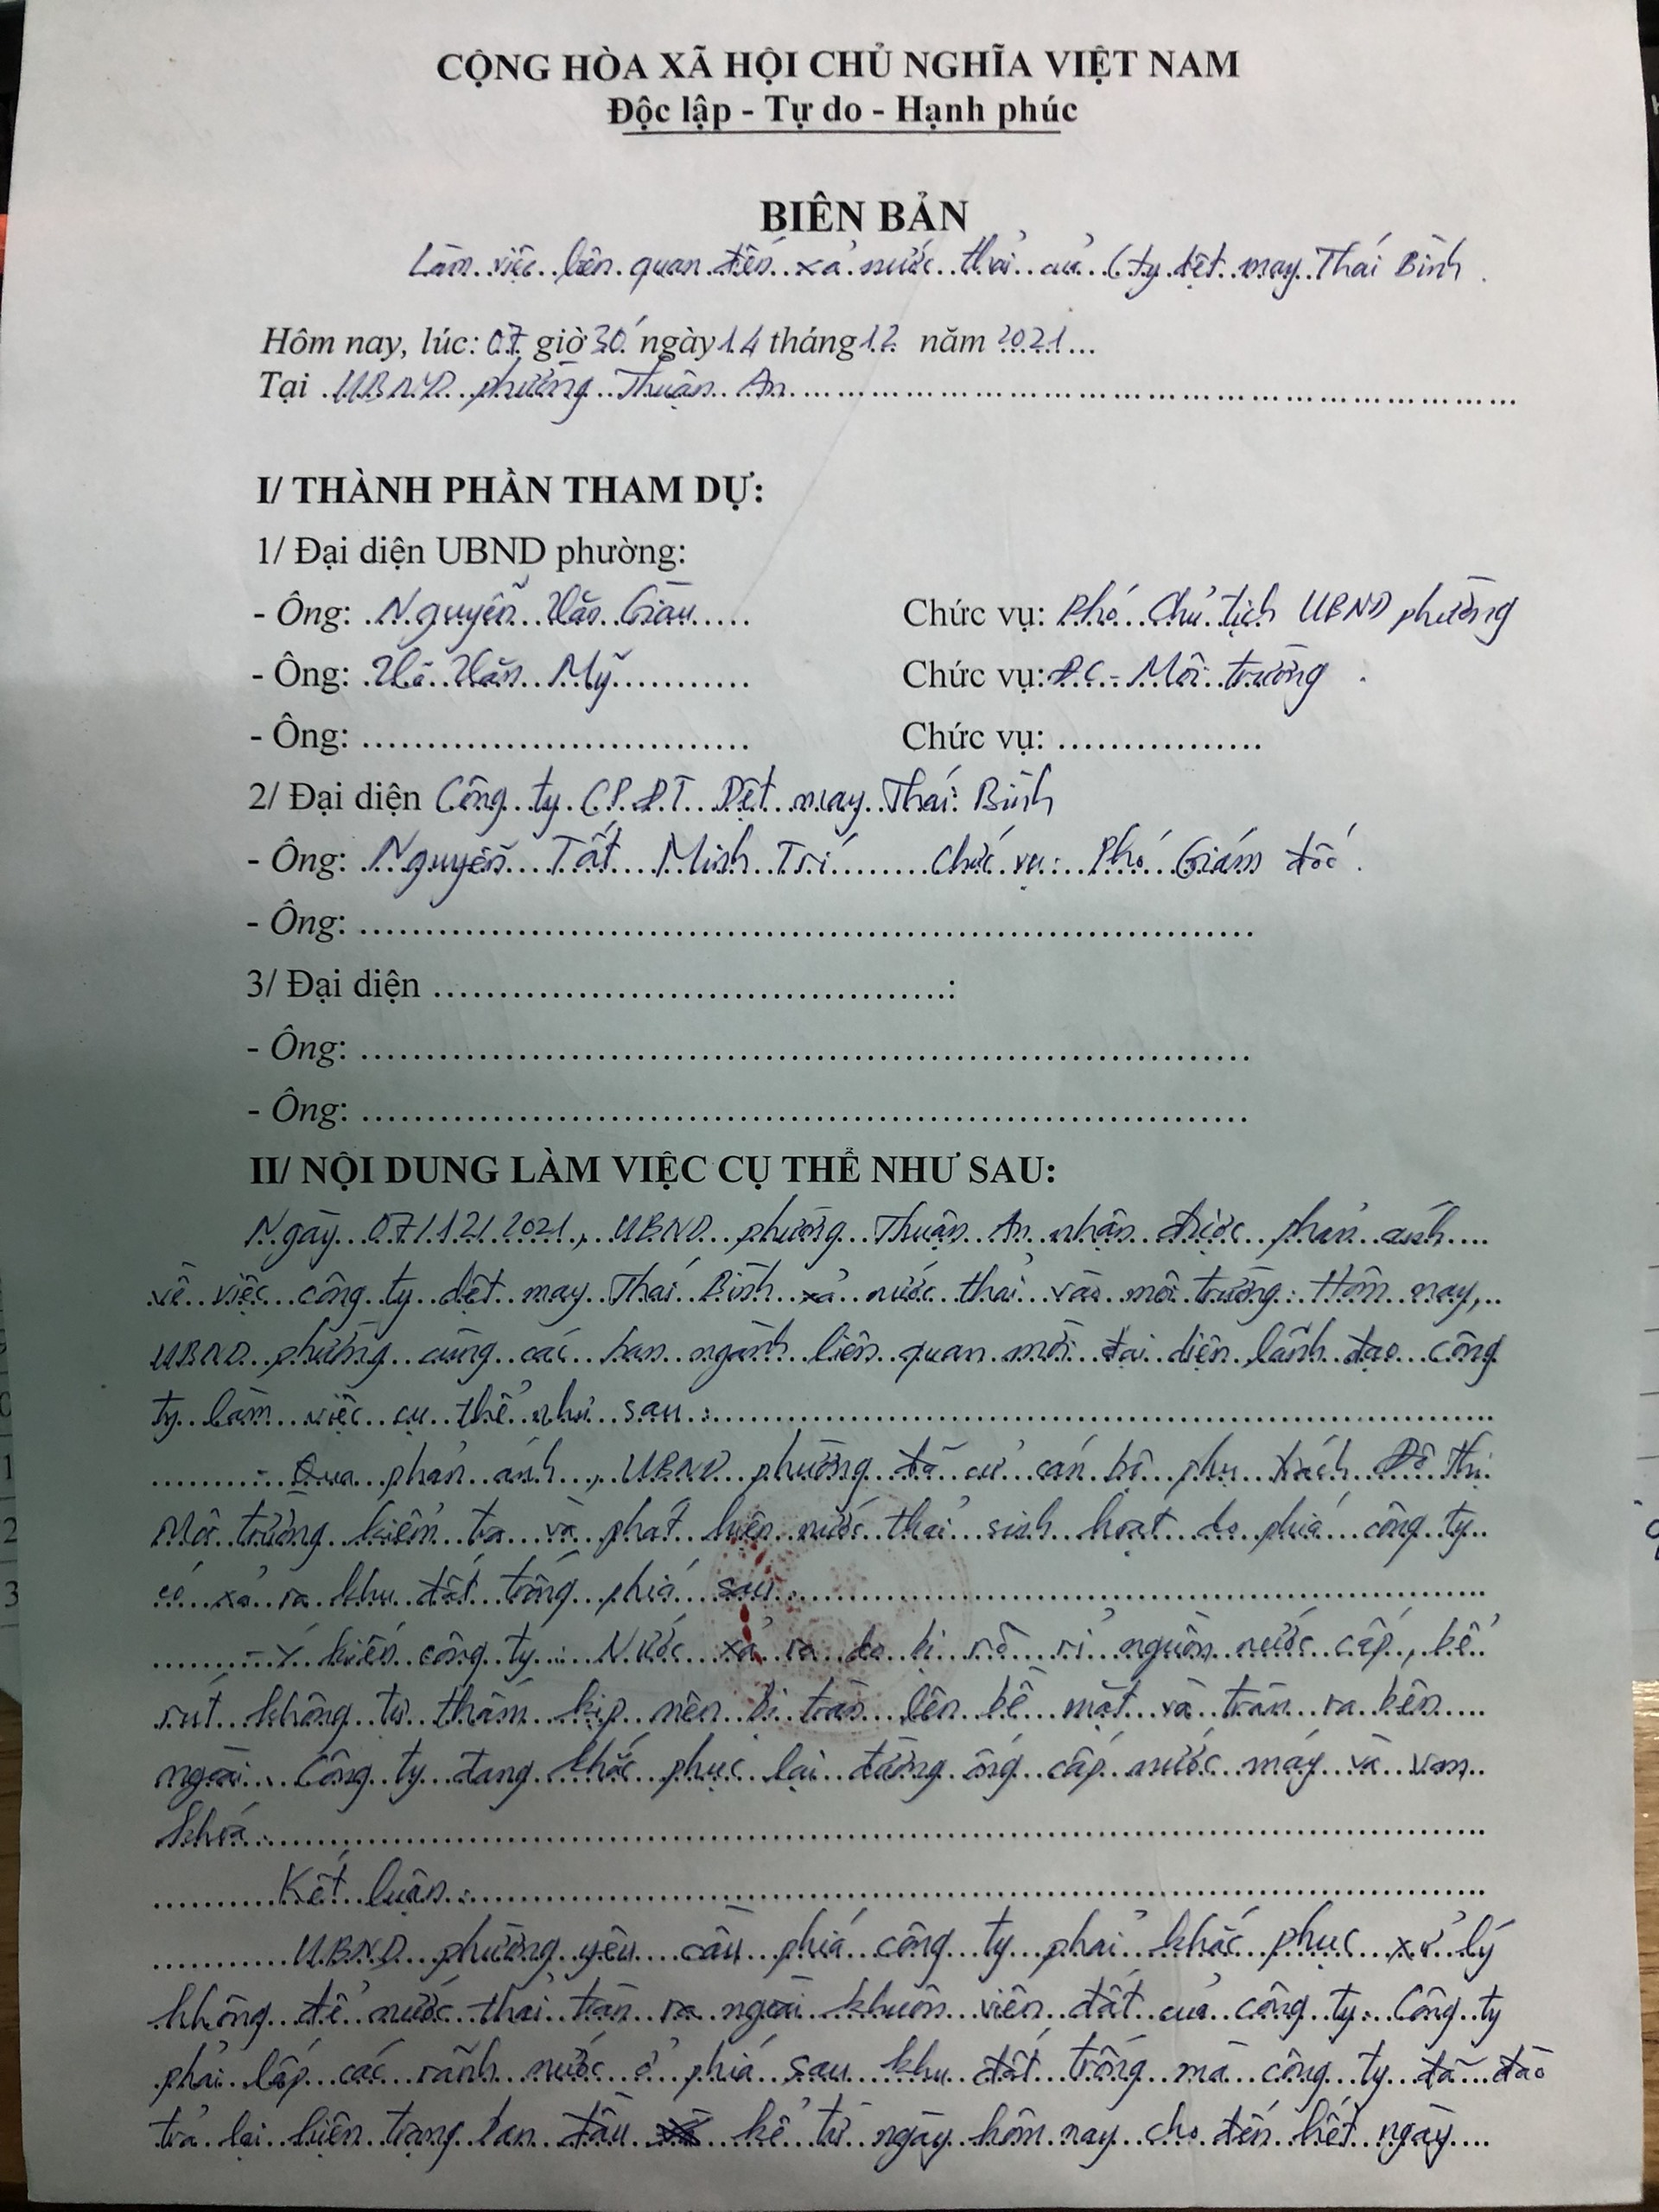 CỘNG HÒA XÃ HỘI CHỦ NGHĨA VIỆT NAM
Độc lập - Tự do - Hạnh phúc
BIÊN BẢN
Làm việc liên quan đến xả nước thải của Cty dệt may Thái Bình.
Hôm nay, lúc: 07 giờ 30 ngày 14 tháng 12 năm 2021
Tại UBND phường Thuận An
I/ THÀNH PHẦN THAM DỰ:
1/ Đại diện UBND phường:
- Ông: Nguyễn Văn Giàu Chức vụ: Phó Chủ tịch UBND phường
- Ông: Văn Mỹ Chức vụ: ĐC - Môi trường.
- Ông: Chức vụ:
2/ Đại diện Công ty CP ĐT Dệt may Thái Bình
- Ông: Nguyễn Tất Minh Trí Chức vụ: Phó Giám đốc.
- Ông:
3/ Đại diện :
- Ông:
- Ông:
II/ NỘI DUNG LÀM VIỆC CỤ THỂ NHƯ SAU:
Ngày 07/12/2021, UBND phường Thuận An nhận được phản ánh
về việc công ty dệt may Thái Bình xả nước thải vào môi trường. Hôm nay,
UBND phường cùng các ban ngành liên quan mời đại diện lãnh đạo công
ty làm việc cụ thể như sau:
- Qua phản ánh, UBND phường đã cử cán bộ phụ trách Đô thị
Môi trường kiểm tra và phát hiện nước thải sinh hoạt do phía công ty
có xả ra khu đất trống phía sau.
- Ý kiến công ty: Nước xả ra do bị rò rỉ nguồn nước cấp, bể
rút không tự thấm kịp nên bị tràn lên bề mặt và tràn ra bên
ngoài. Công ty đang khắc phục lại đường ống cấp nước máy và van
khóa.
Kết luận:
UBND phường yêu cầu phía công ty phải khắc phục xử lý
không để nước thải tràn ra ngoài khuôn viên đất của công ty. Công ty
phải lấp các rãnh nước ở phía sau khu đất trống mà công ty đã đào
trả lại hiện trạng ban đầu kể từ ngày hôm nay cho đến hết ngày